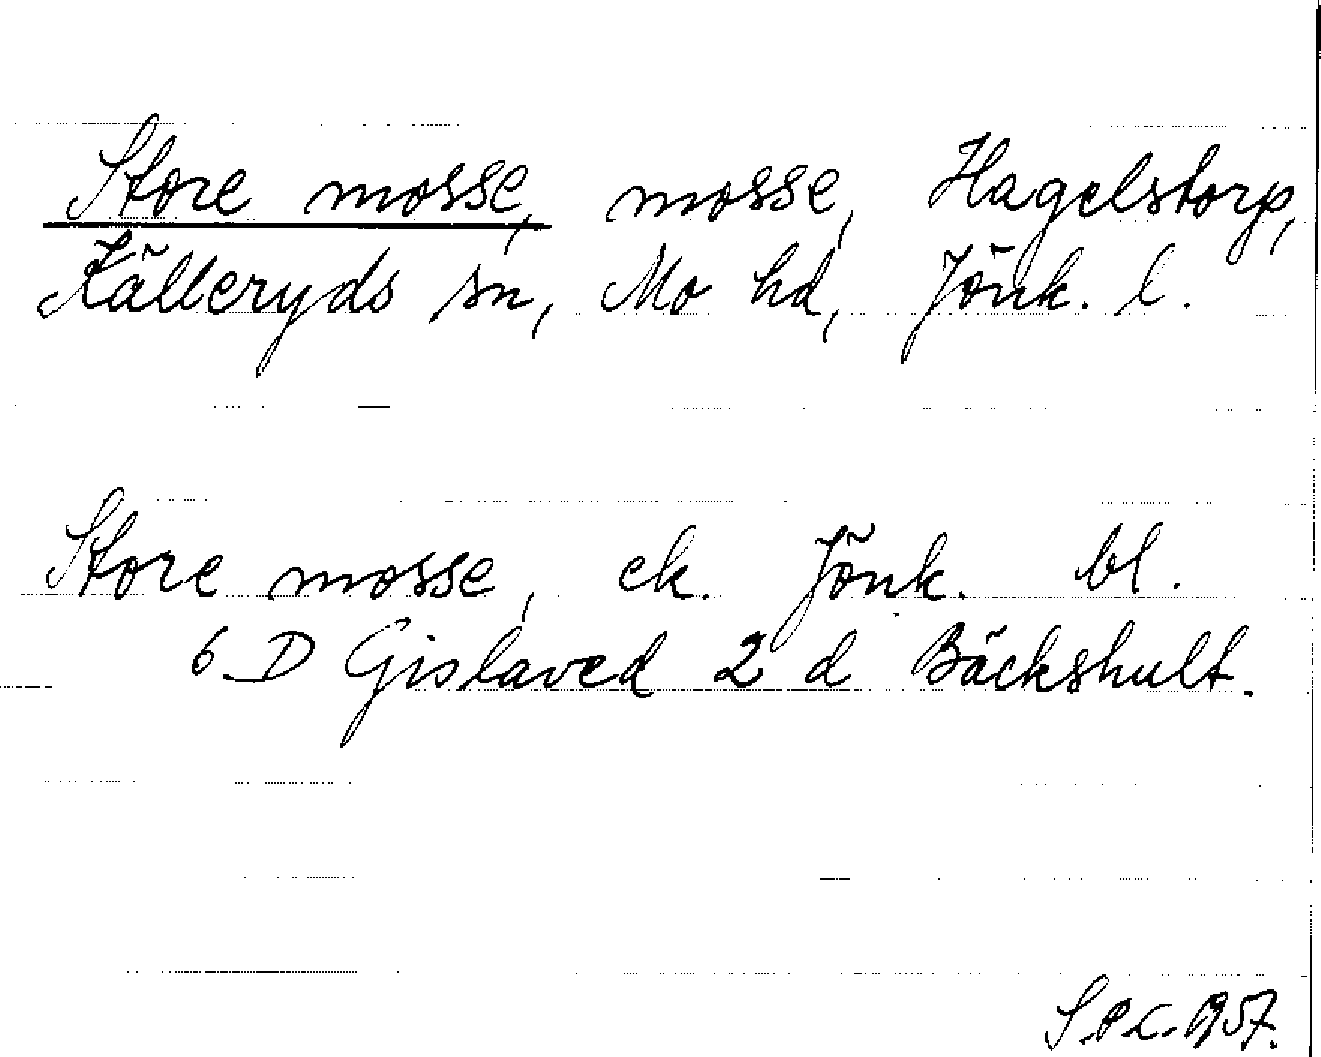 Store mosse, mosse, Hagelstorp,
Källeryds sn, Mo hd, Jönk. l.
Store mosse, ek. Jönk. bl.
6 D Gislaved 2 d Bäckshult.
S.P.L. 1957.